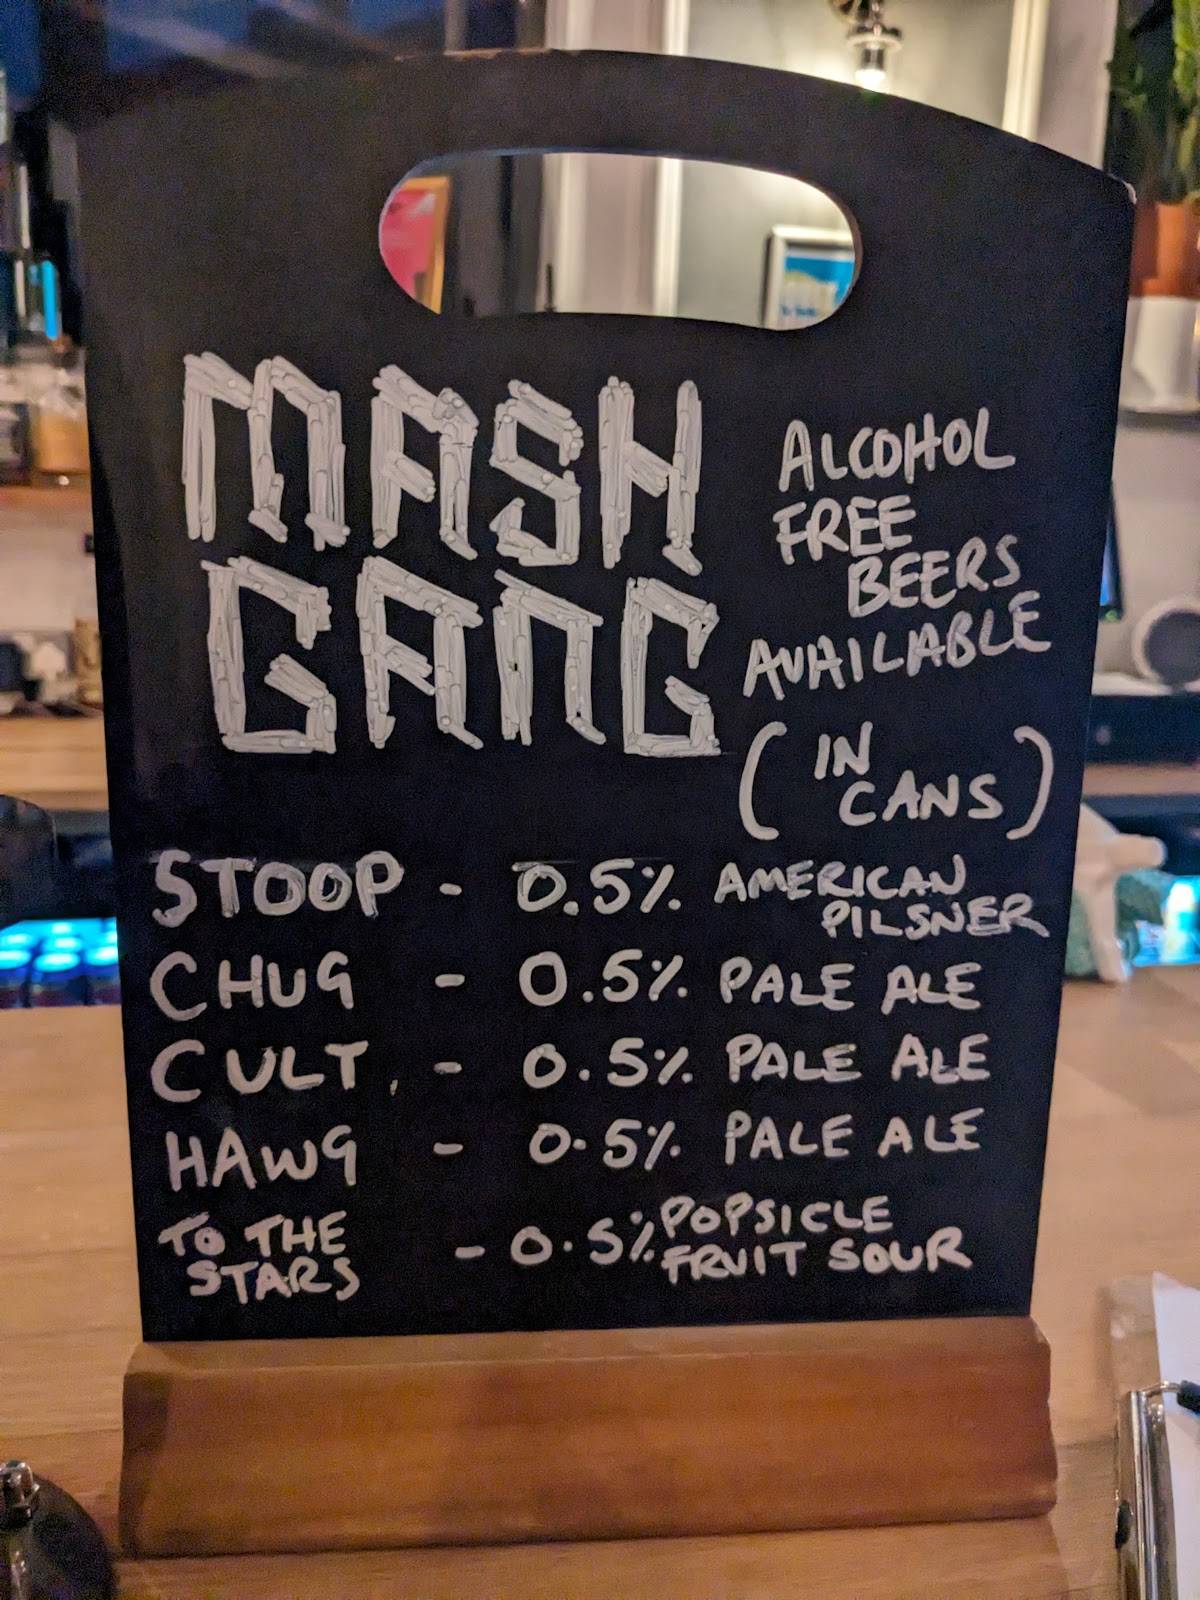 MASH
GANG
ALCOHOL
FREE
BEERS
AVAILABLE
(IN
CANS)
STOOP - 0.5% AMERICAN
PILSNER
CHUG - 0.5% PALE ALE
CULT - 0.5% PALE ALE
HAWG - 0.5% PALE ALE
TO THE
STARS - 0.5% POPSICLE
FRUIT SOUR